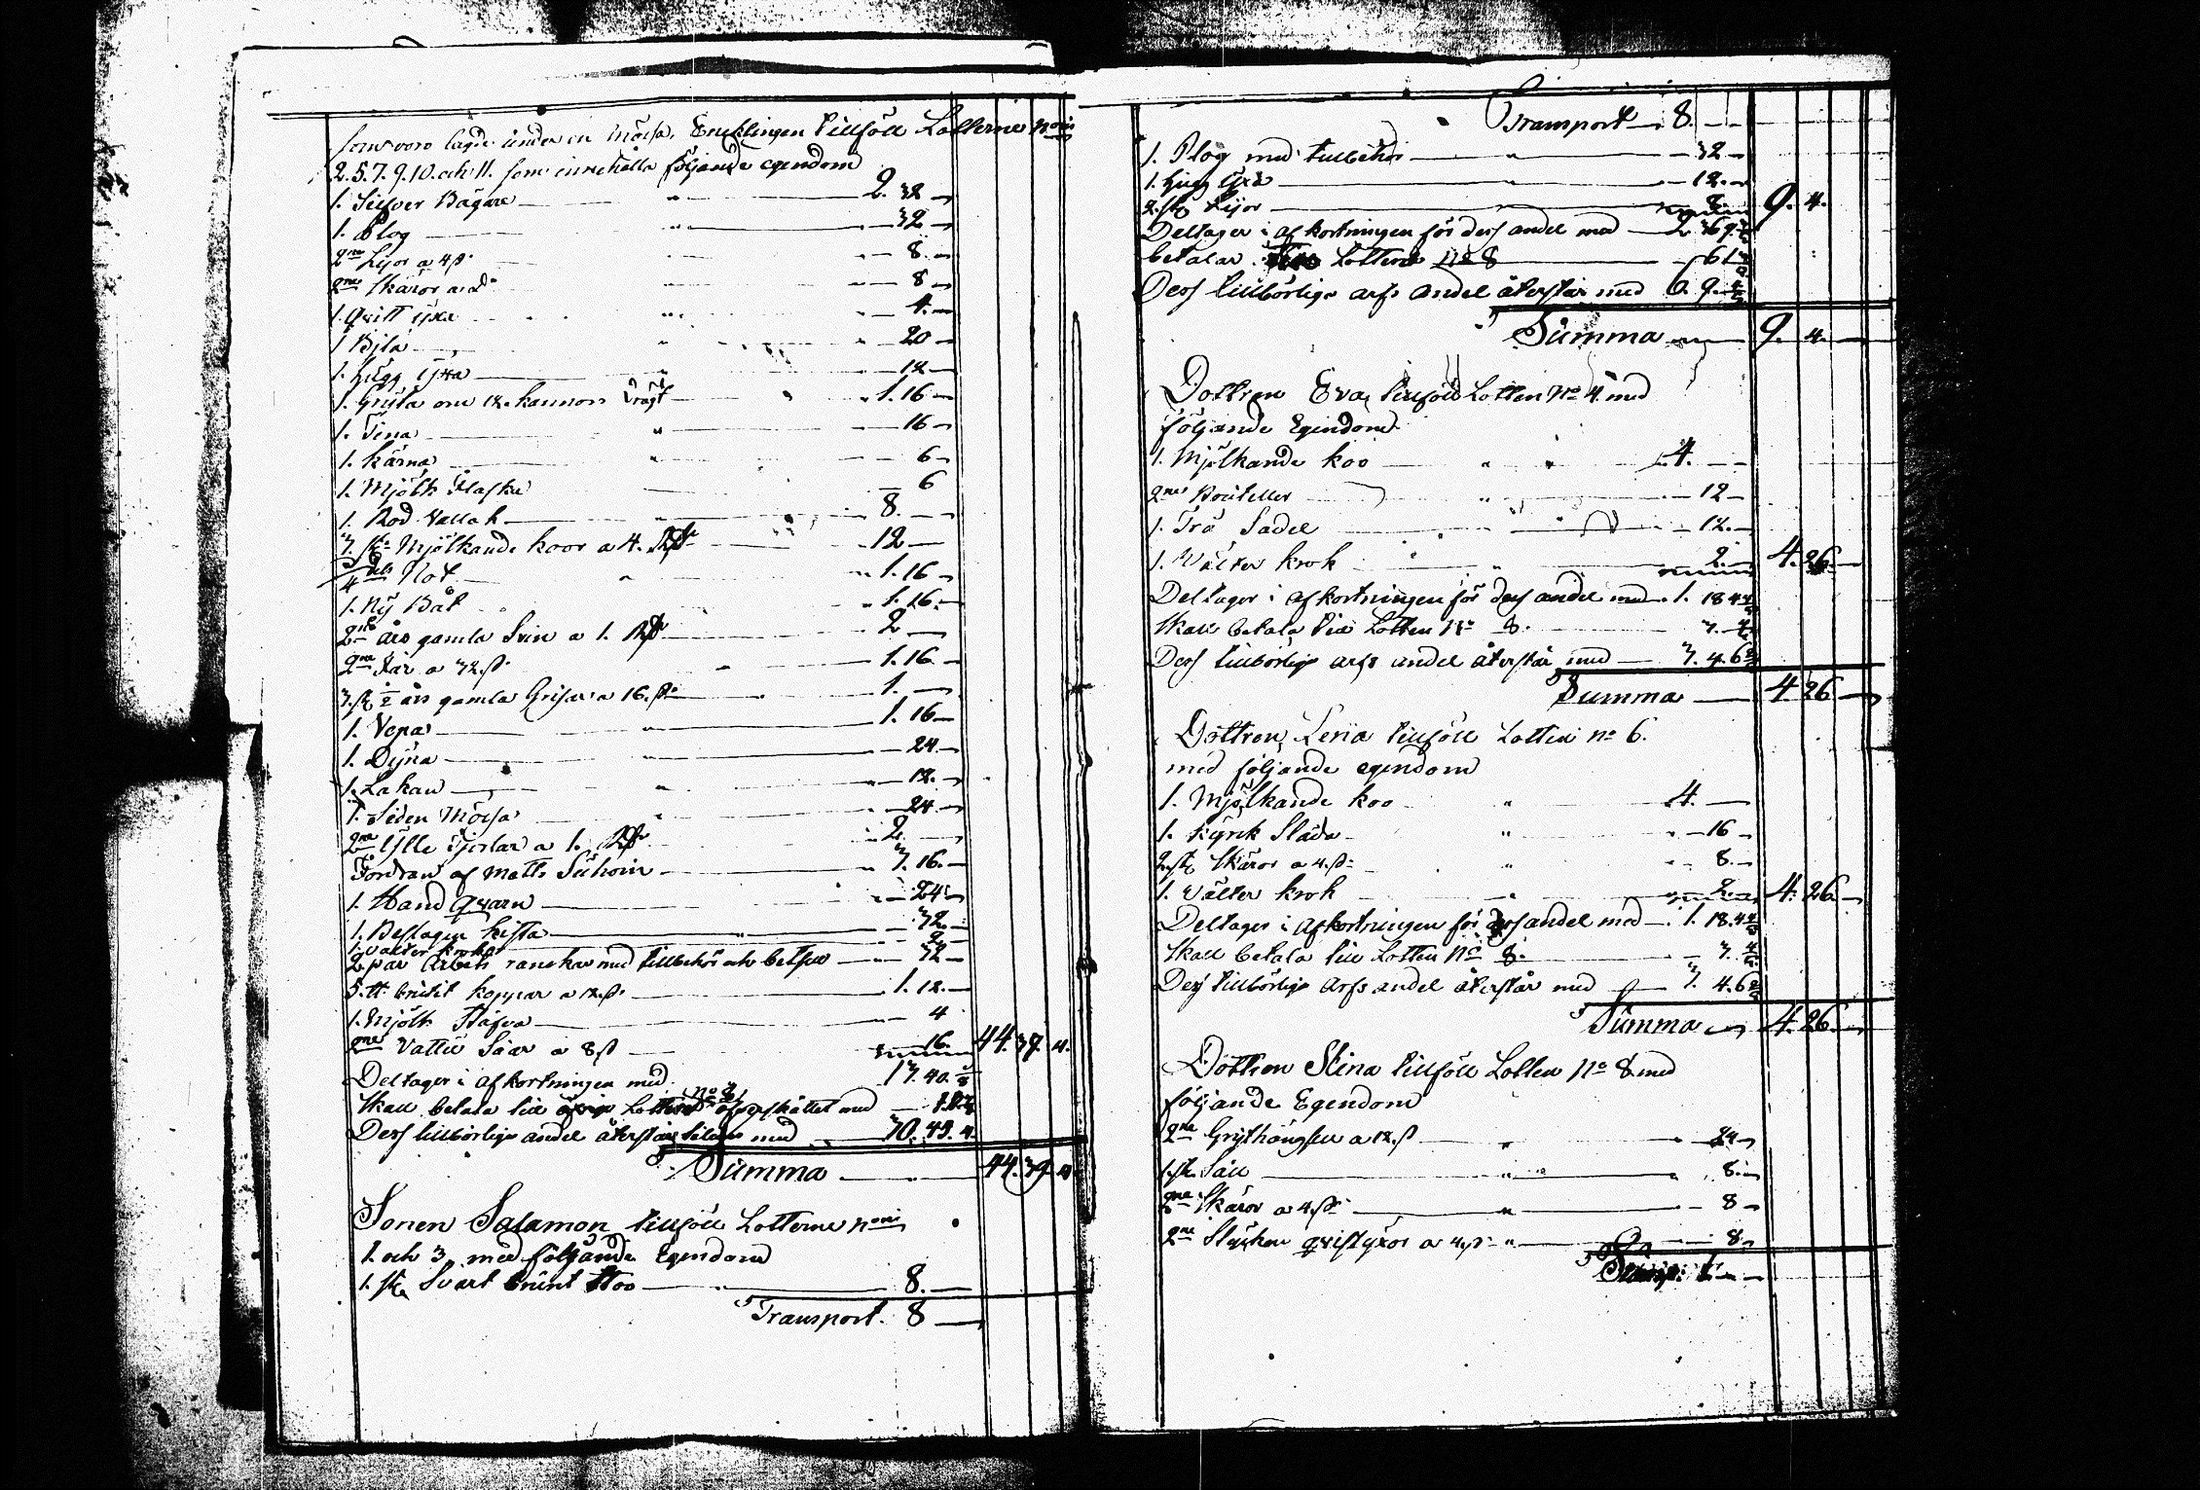 som voro lagde under en mössa, Encklingen tillföll Lotterne N:ris
2. 5. 7. 9. 10. och 11. som innehålla följande egendom
1. Silfver Bägare — " — 2. 32 —
1. Plog — " — 32 —
2:ne Lijor a 4 ß — 8. —
2:ne Skäror a d:o — 8 —
1. Qvist yxa — 4. —
1 Bila — 20 —
1. Hugg yxa — 12 —
1. Gryta om 12. kannors " — 1. 16 —
1. Tina — " — 16 —
1. Kärna — " — 6 —
1. Mjölk Flaska — 6
1. Röd Vallak — " — 8. —
3. st: Mjölkande koor a 4. Rß — 12 —
3/4 dels Not — " — 1. 16 —
1. Ny Båt — 1. 16. —
2:ne års gamla Svin a 1. Rß — 2 —
2:ne Får a 32. ß — 1. 16. —
3. st ½ års gamla Grisar a 16. ß — 1. —
1. Vepa — " — 1. 16 —
1. Dyna — " — 24. —
1. Lakan — " — 12. —
1. Siden Mössa — " — 24. —
2:ne Ylle kjortlar a 1. Rß — 2. —
Fordran af Matts Suhoin — 3. 16. —
1. Hand qvarn — 24 —
1. Beslagen kista — " — 32. —
1. välter krok — 2. —
2 par Arbets rankor med tillbehör och betslar — 32 —
5. ℔ brukit koppar a 12. ß — 1. 12. —
1. Mjölk Stäfva — 4
2:ne Vattu Såar a 8 ß — 16. — 44. 39. 4.
Deltager i afkortningen med — 13. 40.
Skall betala till Lotten N:o 8 öfverskottet med
Dess tillbörlige andel återstår med — 30. 45. 4.
Summa — 44. 39. 4
Sonen Salamon tillföll Lotterne N:ris
1. och 3. med följande Egendom
1. st. Svart brunt Stoo — 8. —
Transport. 8 —
Transport — 8. —
1. Plog med tillbehör — " — 32 —
1. Hugg Yxa — " — 12. —
2. st Lijor — 8. — 9. 4.
Deltager i afkortningen för dess andel med — 2 36
betalar Lotten N:o 8
Dess tillbörlige arfs andel återstår med 6. 9.
Summa — 9. 4. —
Dottren Eva tillföll Lotten N:o 4. med
följande Egendom
1. Mjölkande koo — " — 4. —
2:ne Bouteller — " — 12 —
1. Trä Sadel — " — 12. —
1. Välter krok — " — 2. — 4. 26. —
Deltager i afkortningen för dess andel med 1. 18
Skall betala till Lotten N:o 8. — 3.
Dess tillbörlige arfs andel återstår med — 3. 4. 6
Summa — 4. 26 —
Dottren Lena tillföll Lotten N:o 6.
med följande egendom
1. Mjölkande koo — " — 4. —
1. Kyrk Släda — " — 16 —
2. st Skäror a 4. ß — " — 8. —
1. Välter krok — " — 2. — 4. 26. —
Deltager i afkortningen för dess andel med — 1. 18.
Skall betala till Lotten N:o 8. — 3.
Dess tillbörlige Arfs andel återstår med — 3. 4. 6
Summa — 4. 26. —
Dottren Stina tillföll Lotten N:o 8 med
följande Egendom
2:ne Grythängslen a 12. ß — " — 24 —
1. st. Såll — " — 8. —
2:ne Skäror a 4. ß — " — 8 —
2:ne Stycken qvistyxor a 4. ß — " — 8 —
Transp: 1. —